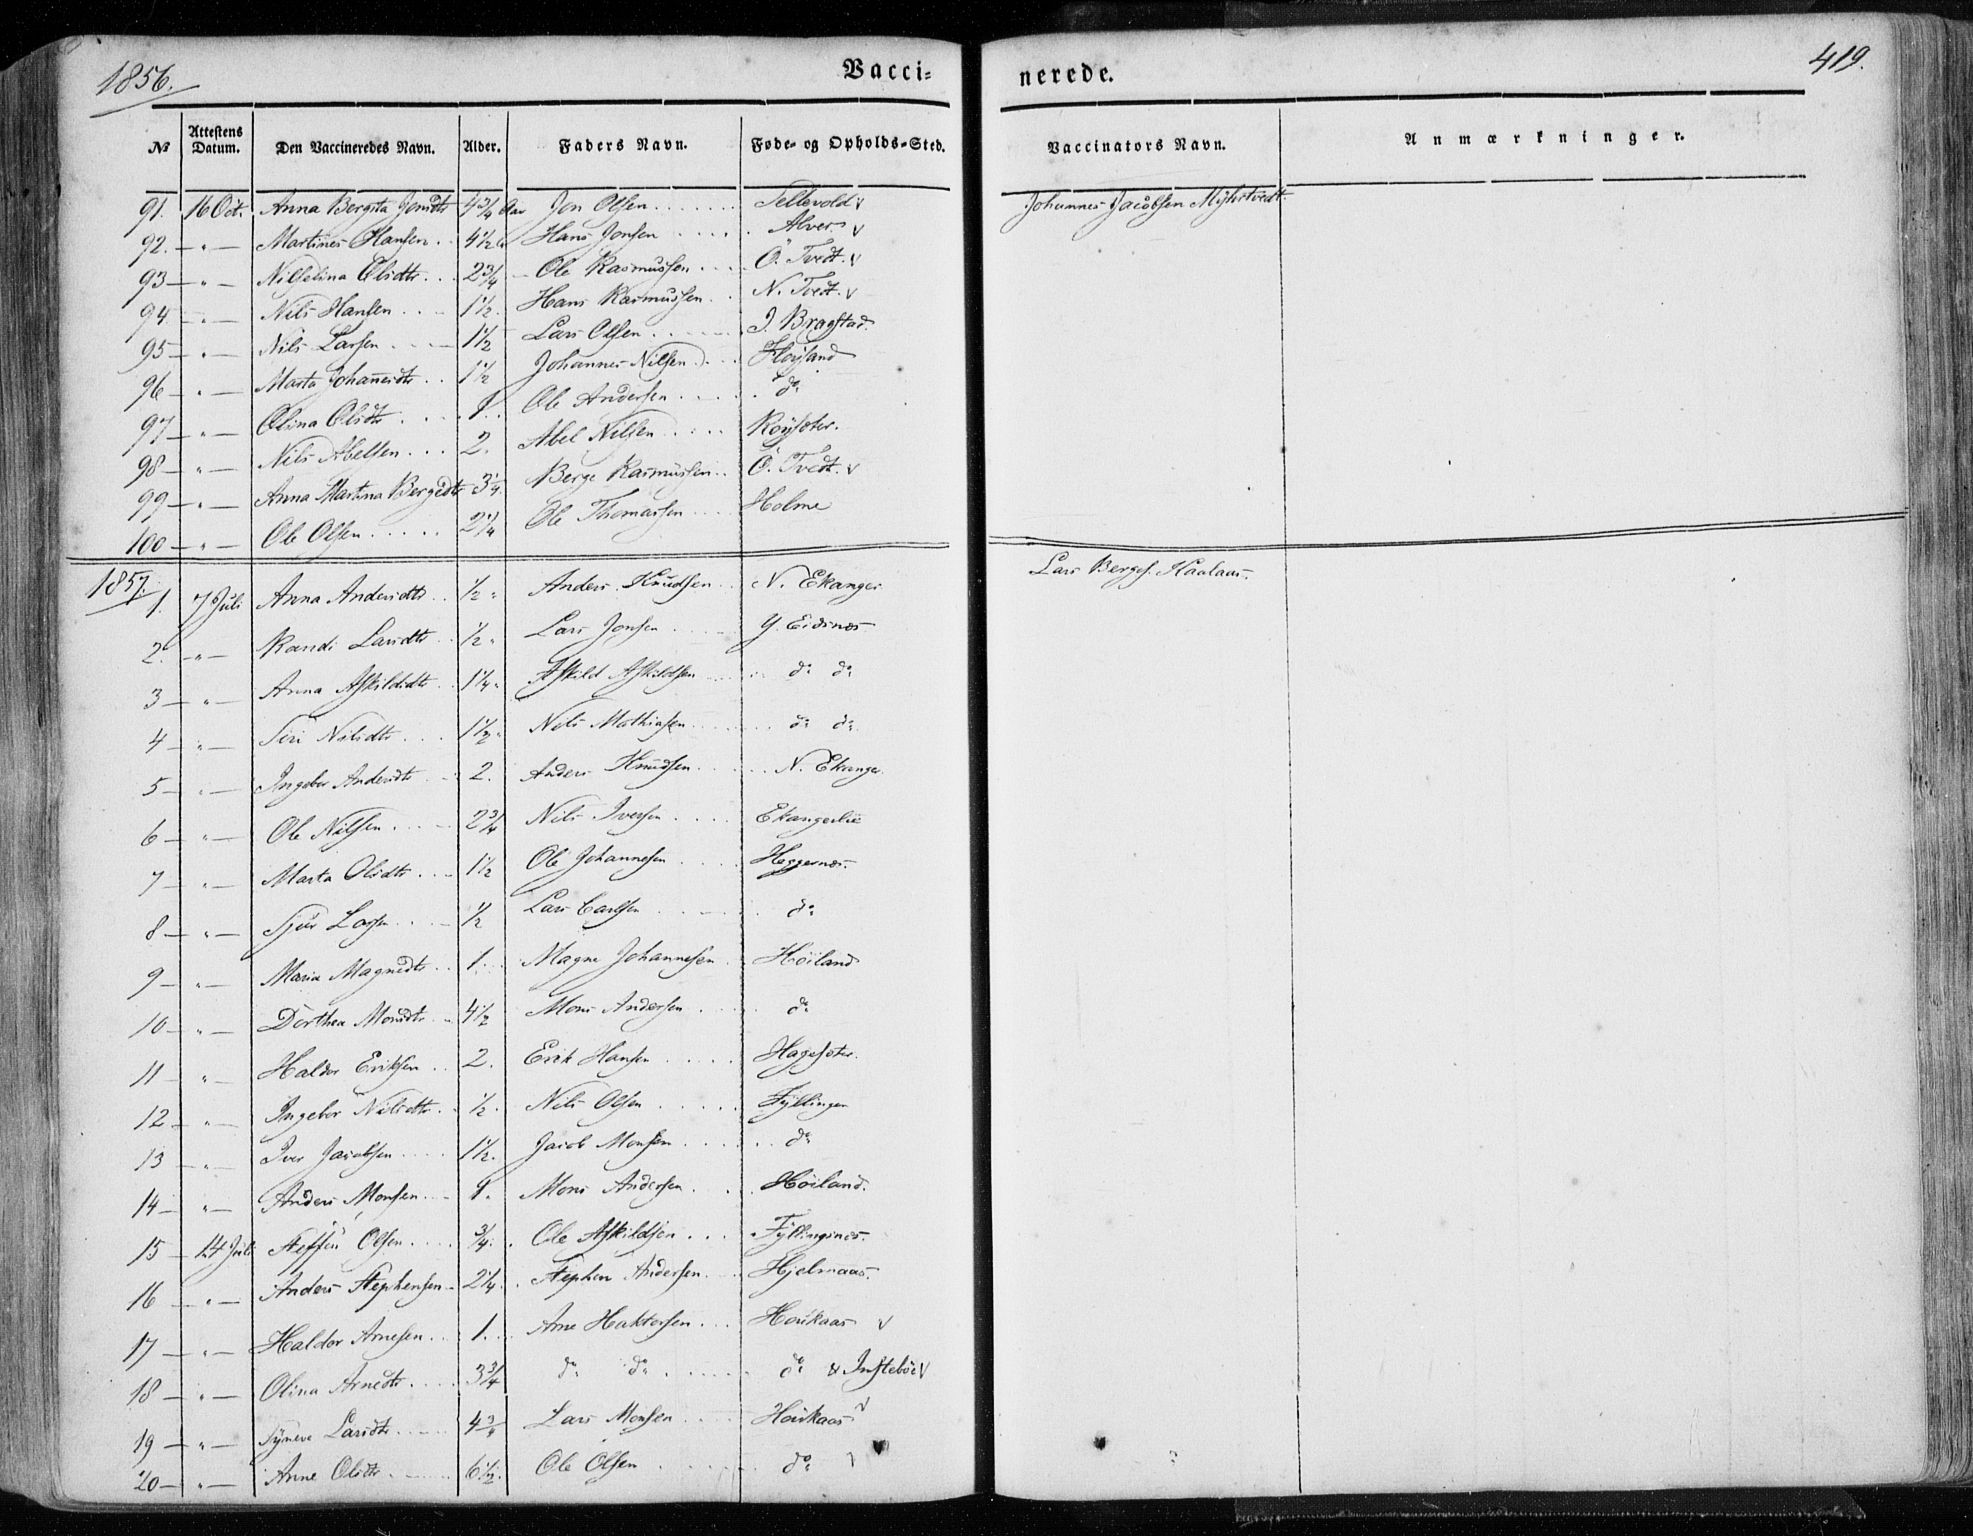 1856. Vacci= nerede. 419.
No Attestens Datum. Den Vaccineredes Navn. Alder. Faders Navn. Føde- og Opholds-Sted. Vaccinators Navn. Anmærkninger.
91. 16 Oct. Anna Bergita Jonsdtr 4 3/4 Aar Jon Olsen Tellevold v Johannes Jacobsen
92. — " — Martines Hansen 4 1/2 Hans Jonsen Alver v
93 — " — Nilselina Olsdtr 2 3/4 Ole Rasmussen Ö. Tvedt. v
94 — " — Nils Hansen 1 1/2 Hans Rasmussen N. Tvedt. v
95 — " — Nils Larsen 1 1/2 Lars Olsen I. Bragstad.
96 — " — Marta Johannesdtr 1 1/2 Johannes Nilsen Höÿland
97 — " — Olina Olsdtr 1 Ole Andersen do
98 — " — Nils Abelsen 2. Abel Nilsen Röÿseter.
99 — " — Anna Martina Bergedtr 3 1/4. Berge Rasmussen Ö. Tvedt. v
100 — " — Ole Olsen 2 1/4 Ole Thomassen Holme
1857.
1. 7 Juli Anna Andersdtr 1/2 " Anders Knudsen N. Ekanger Lars Berges. Kaalaas.
2. — " — Randi Larsdtr 1/2 " Lars Jonsen Y. Eidsnes
3 — " — Anna Askildsdtr 1 1/4 " Askild Askildsen do do
4 — " — Siri Nilsdtr 1 1/2 " Nils Mathiasen do do
5 — " — Ingebor Andersdtr 2. Anders Knudsen N. Ekanger.
6 — " — Ole Nilsen 2 3/4 Nils Iversen Ekangerlie
7 — " — Marta Olsdtr 1 1/2 Ole Johannesen Heggernes.
8 — " — Sjur Larsen 1/2 Lars Carlsen do
9 — " — Maria Magnedtr 1. Magne Johannesen Höiland
10 — " — Dorthea Monsdtr 4 1/2 Mons Andersen do
11 — " — Haldor Eriksen 2. Erik Hansen Hageseter.
12 — " — Ingebor Nilsdtr 1/2. Nils Olsen Fyllingen
13 — " — Iver Jacobsen 1 1/2. Jacob Monsen do
14 — " — Anders Monsen 1. Mons Andersen Höiland.
15 — 14 Juli Steffen Olsen 3/4. Ole Askildsen Fyllingsnes.
16 — " — Anders Stephensen 2 1/4. Stephen Andersen Hjelmaas.
17 — " — Haldor Arnesen 1. Arne Haktorsen Houkaas v
18 — " — Olina Arnedtr 3 3/4 do do do & Insteböe v
19 — " — Syneve Larsdtr 4 3/4 Lars Monsen Houkaas v
20 — " — Anne Olsdtr 6 1/2. Ole Olsen do v